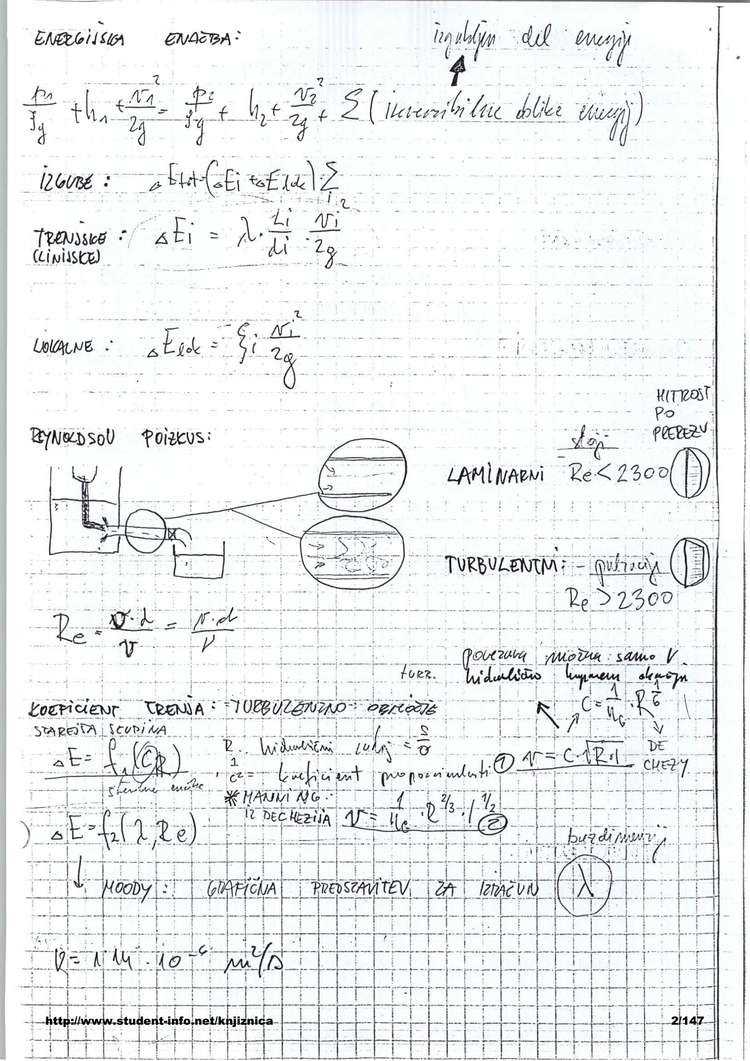 ENERGIJSKA ENAČBA:
izgubljen del energije
p₁/ρg + h₁ + v₁²/2g = p₂/ρg + h₂ + v₂²/2g + Σ (ireverzibilne oblike energij)
IZGUBE: ΔEtot = (ΔEi + ΔElok) Σ i
TRENJSKE: ΔEi = λ · Li/di · vi²/2g
(LINIJSKE)
LOKALNE: ΔElok = ξi vi²/2g
HITROST
PO
PREREZU
REYNOLDSOV POIZKUS:
LAMINARNI Re < 2300
TURBULENTNI: - pulzacije
Re > 2300
Re = v·d/ν = v·d/ν
povezava možna samo v
turb. hidravlično hrapavem območju
KOEFICIENT TRENJA: TURBULENTNO OBMOČJE
C = 1/nG · R^1/6
STAREJŠA SKUPINA
ΔE = f₁(C, R)
R.. hidravlični radij = S/O
1/C² = koeficient proporcionalnosti
① v = C·√R·I
DE
CHEZY
* MANNING:
IZ DECHEZIJA v = 1/nG · R^2/3 · I^1/2 ②
ΔE = f₂(λ, Re)
brezdimenzij
MOODY: GRAFIČNA PREDSTAVITEV ZA IZRAČUN λ
ν = 1,14 · 10⁻⁶ m²/s
http://www.student-info.net/knjiznica
2/147